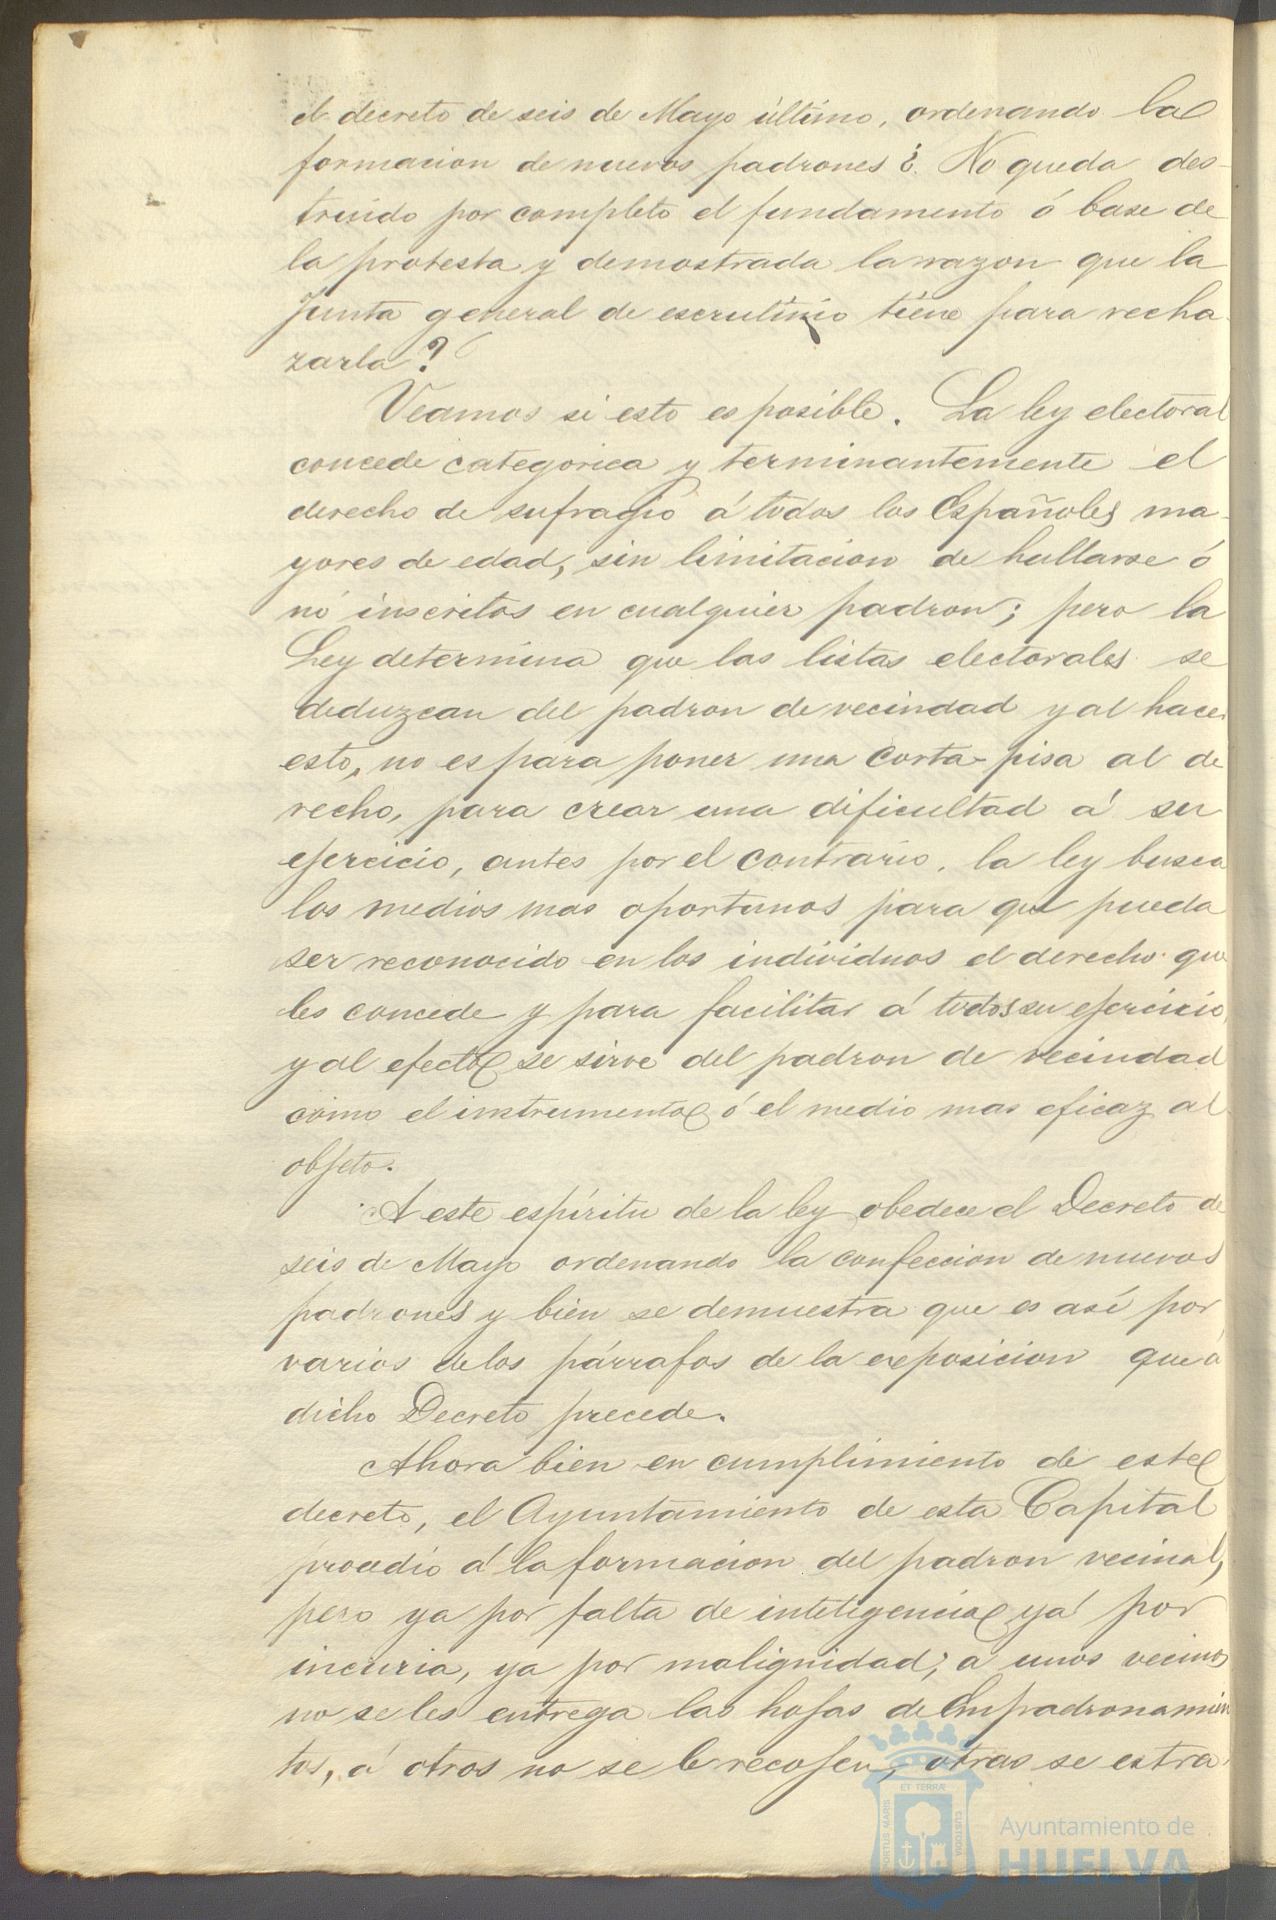 el decreto de seis de Mayo último, ordenando la
formacion de nuevos padrones ¿. No queda des-
truido por completo el fundamento ó base de
la protesta y demostrada la razon que la
Junta general de escrutinio tiene para recha-
zarla?
Veamos si esto es posible. La ley electoral
concede categorica y terminantemente el
derecho de sufragio á todos los Españoles ma-
yores de edad, sin limitacion de hallarse ó
nó inscritos en cualquier padron; pero la
Ley determina que las listas electorales se
deduzcan del padron de vecindad y al hacer
esto, no es para poner una corta-pisa al de
recho, para crear una dificultad á su
ejercicio, antes por el contrario, la ley busca
los medios mas oportunos para que pueda
ser reconocido en los individuos el derecho que
les concede y para facilitar á todos su ejercicio,
y al efecto se sirve del padron de vecindad
cómo el instrumento ó el medio mas eficaz al
objeto.
A este espíritu de la ley obedece el Decreto de
seis de Mayo ordenando la confeccion de nuevos
padrones y bien se demuestra que es así por
varios de los párrafos de la exposicion que á
dicho Decreto precede.
Ahora bien en cumplimiento de este
decreto, el Ayuntamiento de esta Capital
procedió á la formacion del padron vecinal,
pero ya por falta de inteligencia ya por
incuria, ya por malignidad, á unos vecinos
no se les entrega las hojas de Empadronamien
tos, á otros no se le recojen, otras se estra-
ET TERRÆ
PORTUS MARIS
CUSTODIA
Ayuntamiento de
HUELVA